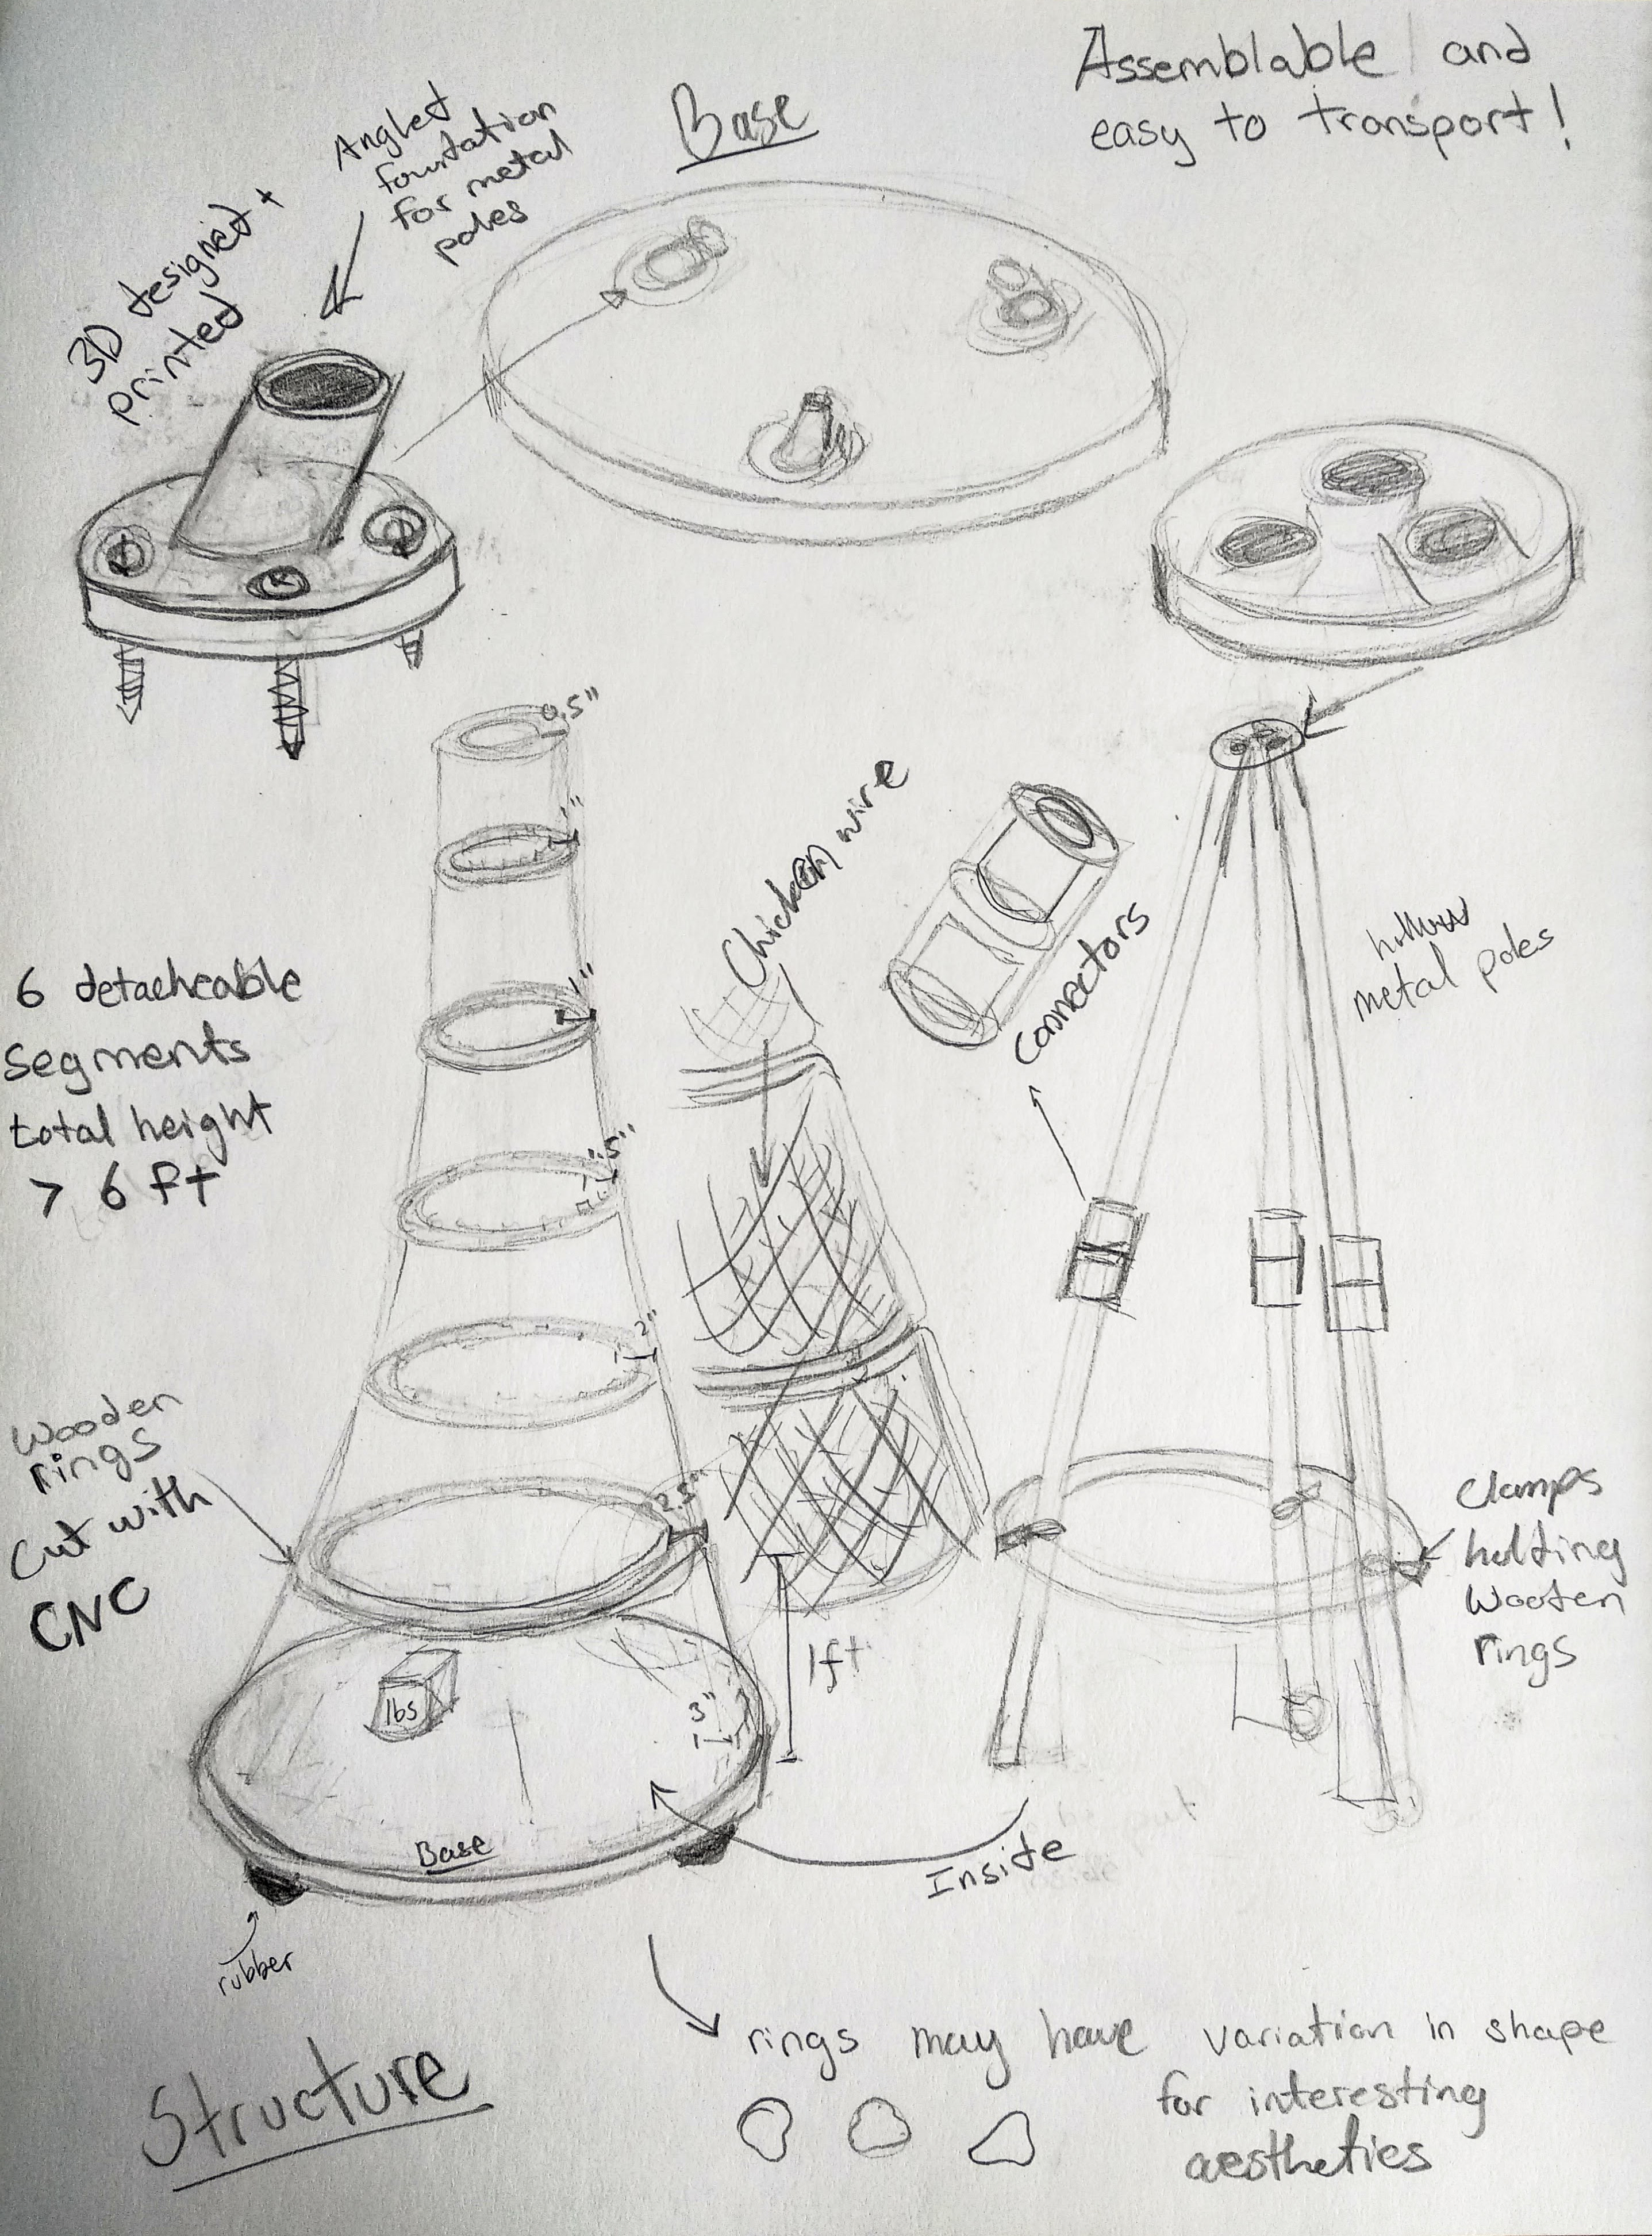 Assemblable and
easy to transport!
Base
Angled
foundation
for metal
poles
3D designed +
printed
0.5"
1"
1"
1.5"
2"
2.5"
3"
Chicken wire
Connectors
hollow
metal poles
6 detacheable
segments
total height
> 6 ft
Wooden
rings
Cut with
CNC
Clamps
holding
Wooden
rings
1ft
lbs
Base
Inside
rubber
Structure
rings may have variation in shape
for interesting
aesthetics